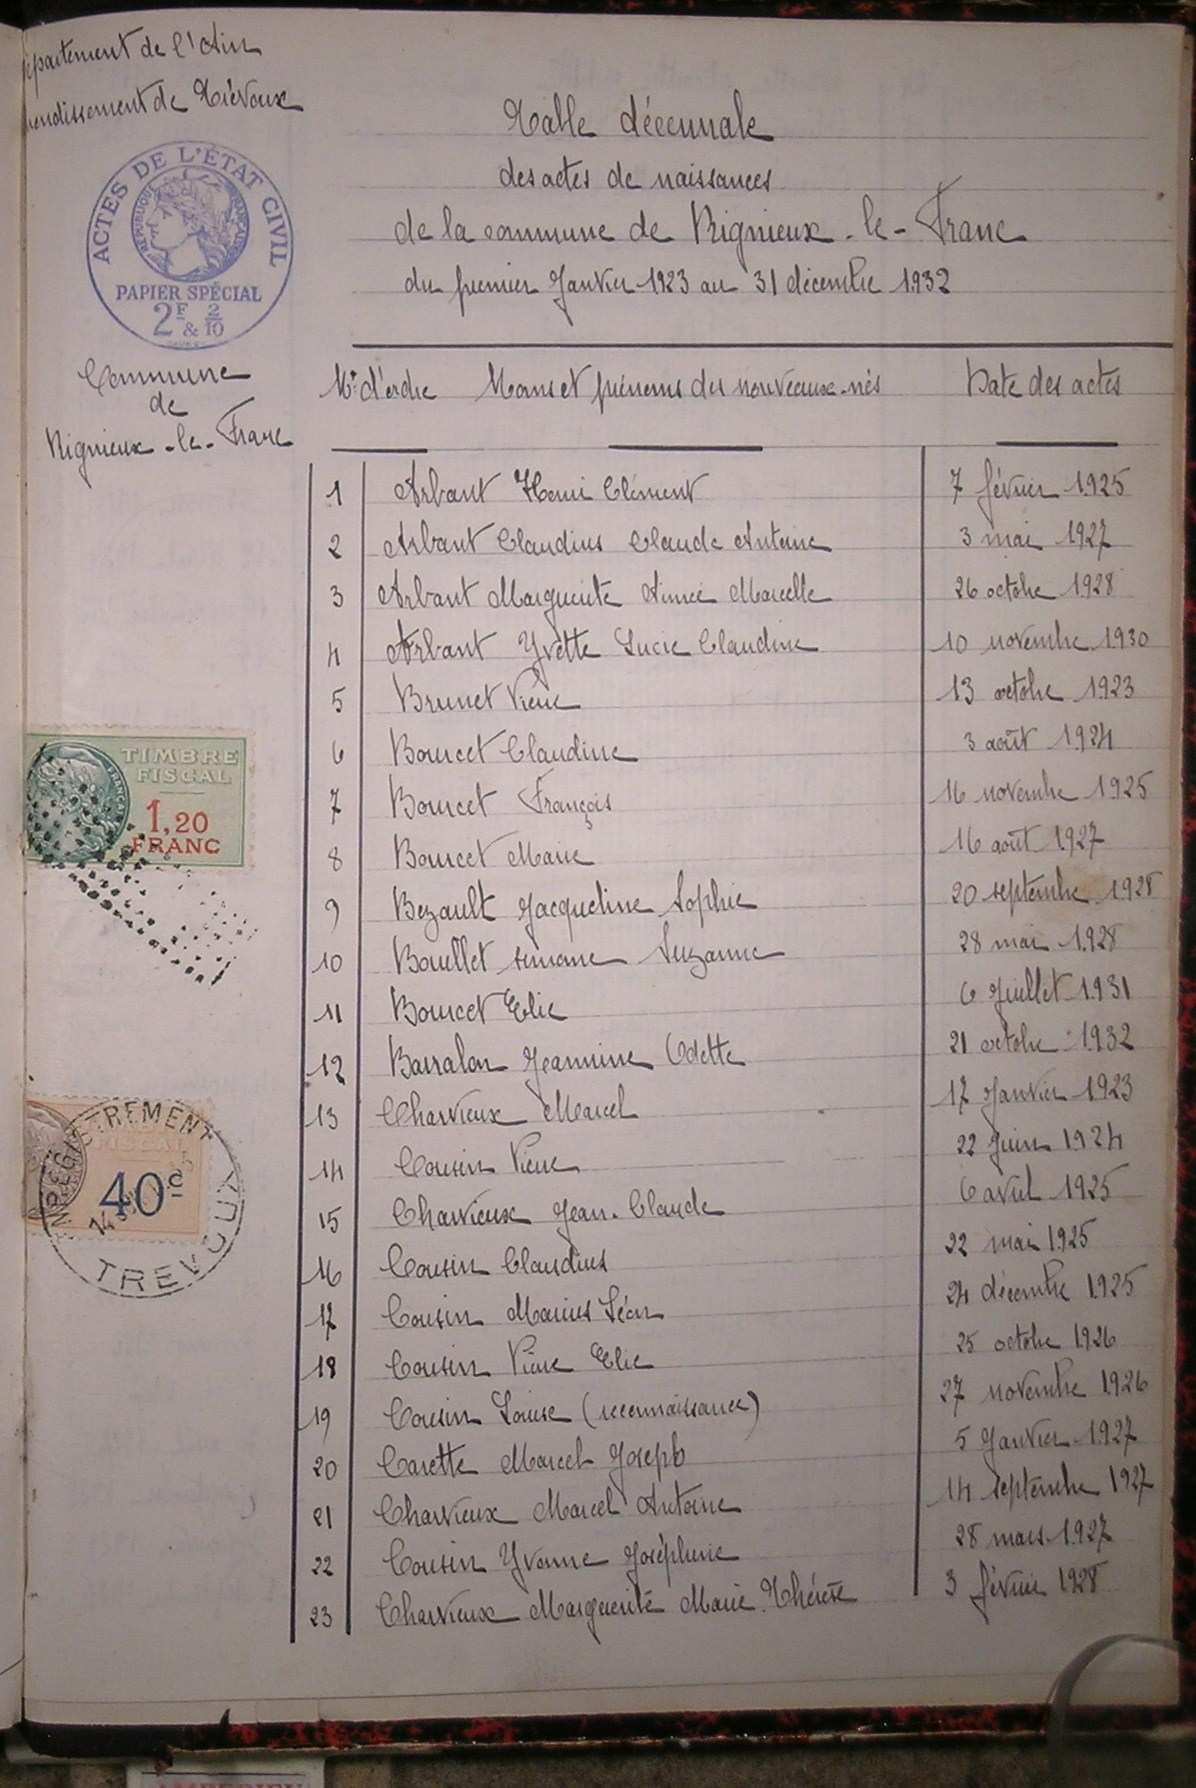 épartement de l'Ain
rondissement de Trévoux
ACTES DE L'ÉTAT CIVIL
RÉPUBLIQUE FRANÇAISE
PAPIER SPÉCIAL
2F & 2/10
Commune
de
Rignieux-le-Franc
Table décennale
des actes de naissances
de la commune de Rignieux-le-Franc
du premier Janvier 1923 au 31 décembre 1932
N° d'ordre Noms et prénoms des nouveaux-nés Date des actes
1 Arbant Henri Clément 7 février 1925
2 Arbant Claudius Claude Antoine 3 mai 1927
3 Arbant Marguerite Aimée Marcelle 26 octobre 1928
4 Arbant Yvette Lucie Claudine 10 novembre 1930
5 Brunet Pierre 13 octobre 1923
6 Bourcet Claudine 3 août 1924
7 Bourcet François 16 novembre 1925
8 Bourcet Marie 16 août 1927
9 Bezault Jacqueline Sophie 20 septembre 1928
10 Bouillet simone Suzanne 28 mai 1928
11 Bourcet Elie 6 Juillet 1931
12 Barralon Jeannine Odette 21 octobre 1932
13 Charvieux Marcel 17 Janvier 1923
14 Cousin Pierre 22 Juin 1924
15 Charvieux Jean-Claude 6 avril 1925
16 Cousin Claudius 22 mai 1925
17 Cousin Marius Léon 24 décembre 1925
18 Cousin Pierre Elie 25 octobre 1926
19 Cousin Louise (reconnaissance) 27 novembre 1926
20 Carette Marcel Joseph 5 Janvier 1927
21 Charvieux Marcel Antoine 14 septembre 1927
22 Cousin Yvonne Joséphine 28 mars 1927
23 Charvieux Marguerite Marie Thérèse 3 février 1928
TIMBRE
FISCAL
1,20
FRANC
FISCAL
40c
TREVOUX